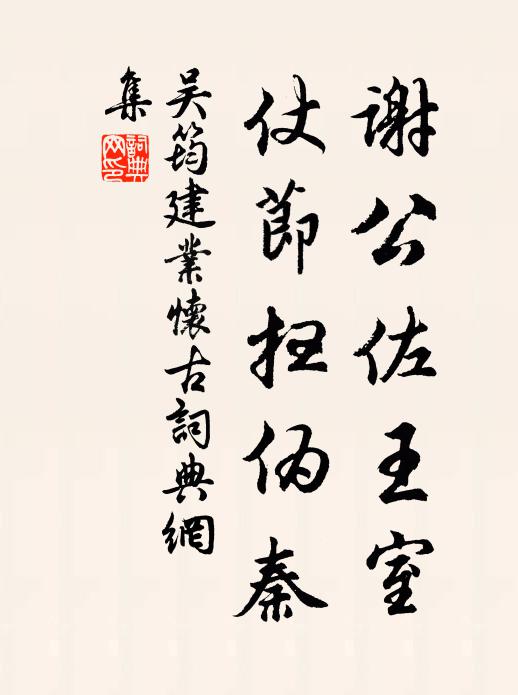 謝公佐王室
仗節掃偽秦
吴筠建業懷古詞典網
集
詞典網印